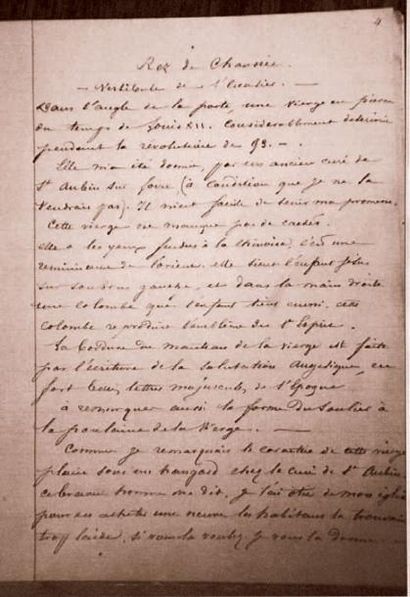 4
Rez de Chaussée.
— Vestibule de l'Escalier.
Dans l'angle de la porte, une vierge en pierre
du temps de Louis XII. Considerablement deterioré
pendant la révolution de 93. —
Elle m'a été donné, par un ancien curé de
St Aubin sur (à condition que je ne la
vendrais pas). Il m'est facile de tenir ma promesse.
Cette vierge ne manque pas de cachet.
elle a les yeux fendus à la chinoise, c'est une
reminiscence de l'orient. elle tient l'enfant Jesus
sur son bras gauche, et dans la main droite
une colombe que l'enfant tient aussi, cette
colombe reproduit l'emblême du St Esprit.
La bordure du manteau de la vierge est faite
par l'écriture de la salutation Angelique, en
fort belles lettres majuscules de l'Epoque
à remarquer aussi la forme du soulier à
la poulaine de la Vierge. —
Comme je remarquais le caractère de cette vierge
placée sous un hangard chez le curé de St Aubin
ce brave homme me dit, je l'ai oté de mon église
pour en acheter une neuve les habitans la trouvant
trop laide, si vous la voulez je vous la donne